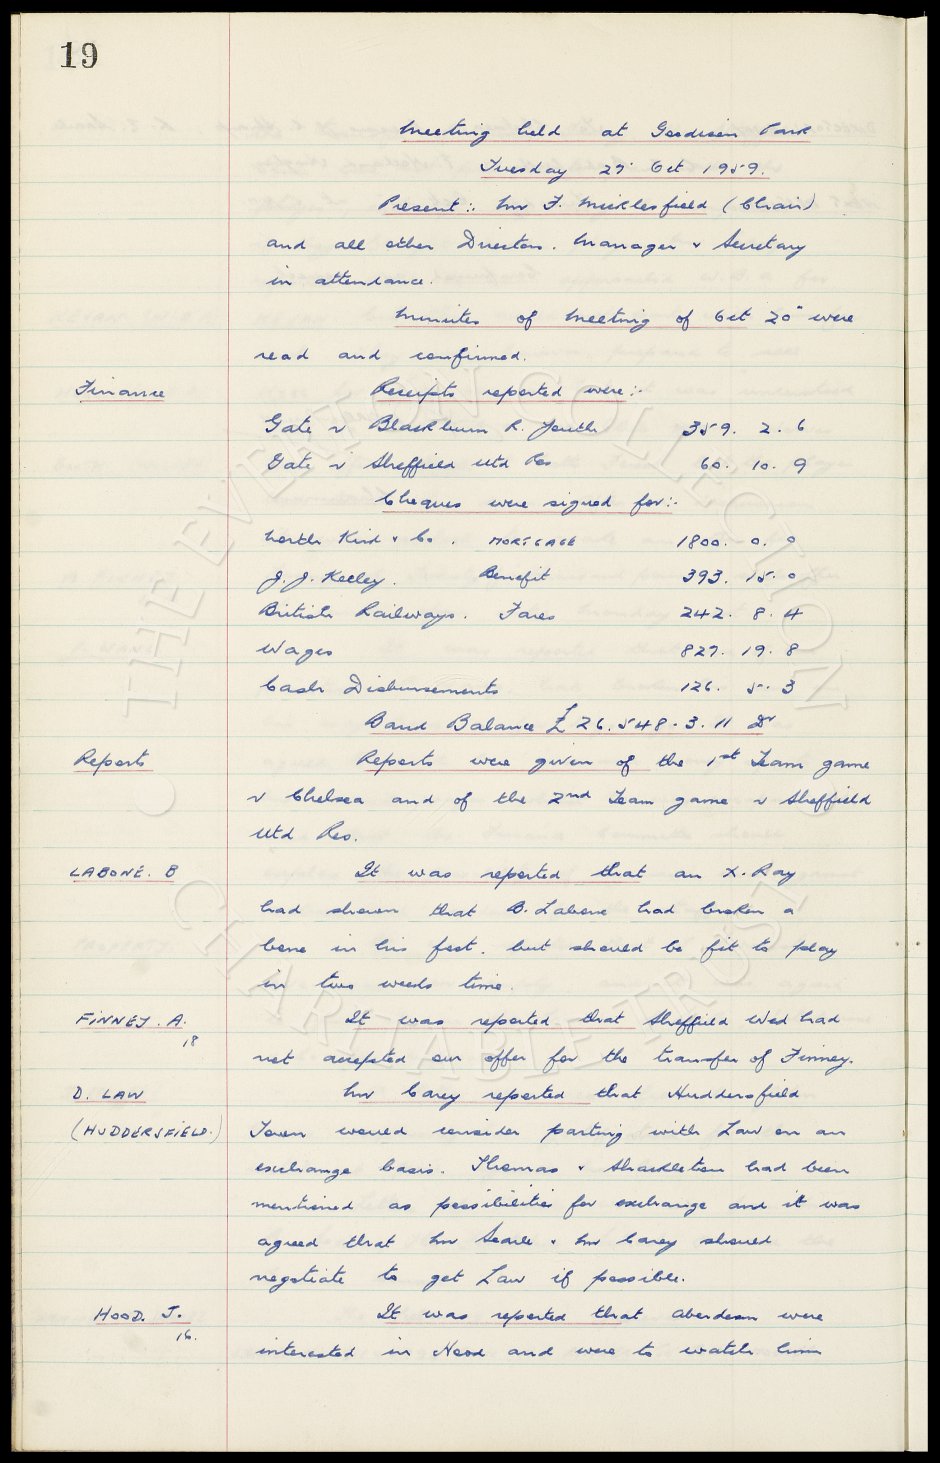 19
Meeting held at Goodison Park
Tuesday 27 Oct 1959.
Present:- Mr F. Micklesfield (Chair)
and all other Directors. Manager & Secretary
in attendance.
Minutes of Meeting of Oct 20" were
read and confirmed.
Finance Receipts reported were:-
Gate v Blackburn R. Youth 359. 2. 6
Gate v Sheffield Utd Res 60. 10. 9
Cheques were signed for:-
North Kirk & Co. MORTGAGE 1800. 0. 0
J. J. Keeley. Benefit 393. 15. 0
British Railways. Fares 242. 8. 4
Wages 827. 19. 8
Cash Disbursements 126. 5. 3
Bank Balance £26.548.3.11 Dr
Reports Reports were given of the 1st Team game
v Chelsea and of the 2nd Team game v Sheffield
Utd Res.
LABONE. B It was reported that an X.Ray
had shown that B. Labone had broken a
bone in his foot. but should be fit to play
in two weeks time.
FINNEY. A. It was reported that Sheffield Wed had
18
not accepted our offer for the transfer of Finney.
D. LAW Mr Carey reported that Huddersfield
(HUDDERSFIELD.) Town would consider parting with Law on an
exchange basis. Thomas & Shackleton had been
mentioned as possibilities for exchange and it was
agreed that Mr Searle & Mr Carey should
negotiate to get Law if possible.
HOOD. J. It was reported that Aberdeen were
16.
interested in Hood and were to watch him
© THE EVERTON COLLECTION
CHARITABLE TRUST